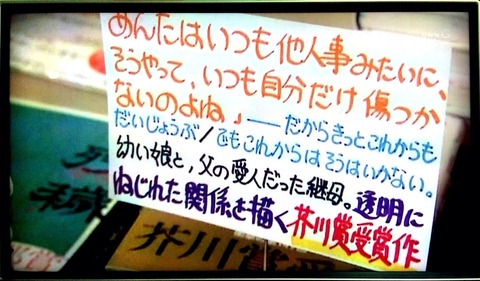 めんたはいつも他人事みたいに、
そうやって、いつも自分だけ傷つか
ないのよね」――だからきっとこれからも
だいじょうぶ/でもこれからはそうはいかない。
幼い娘と、父の愛人だった継母。透明に
ねじれた関係を描く芥川賞受賞作
芥川賞受